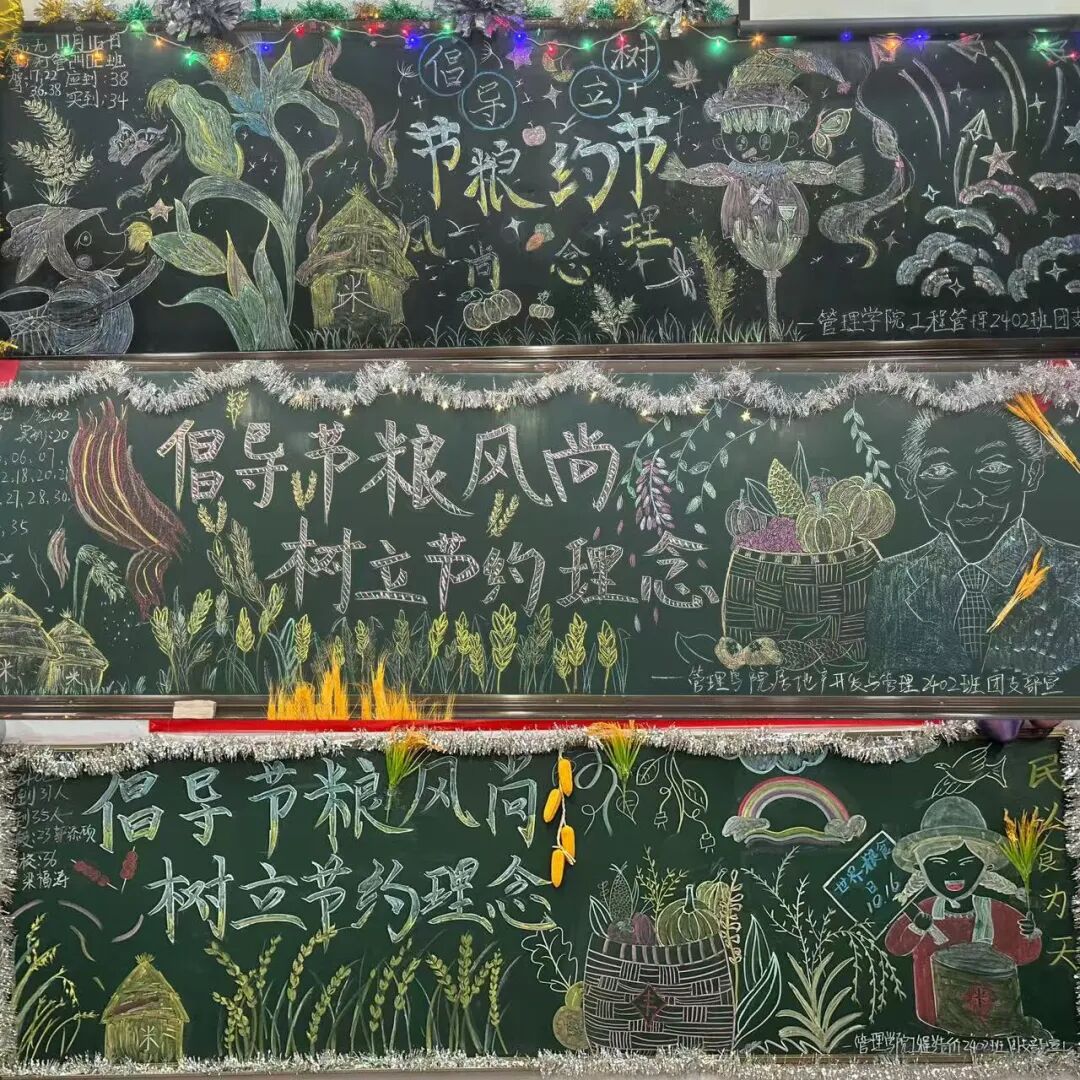 10月16日
应到:38
17.22
36.38
实到:34
倡导
树立
节粮
约节
风尚
理念
米
一管理学院工程管理2402班团支
2402
实到:20
06.07
2.18.20.2
27,28,30.
35
倡导节粮风尚
树立节约理念
米
米
一管理学院房地产开发与管理2402班团支部宣
到31人
到35人
倡导节粮风尚
树立节约理念
米
丰
世界粮食
日
10.16
米
民以食为天
一管理学院工程造价2402班团支部宣